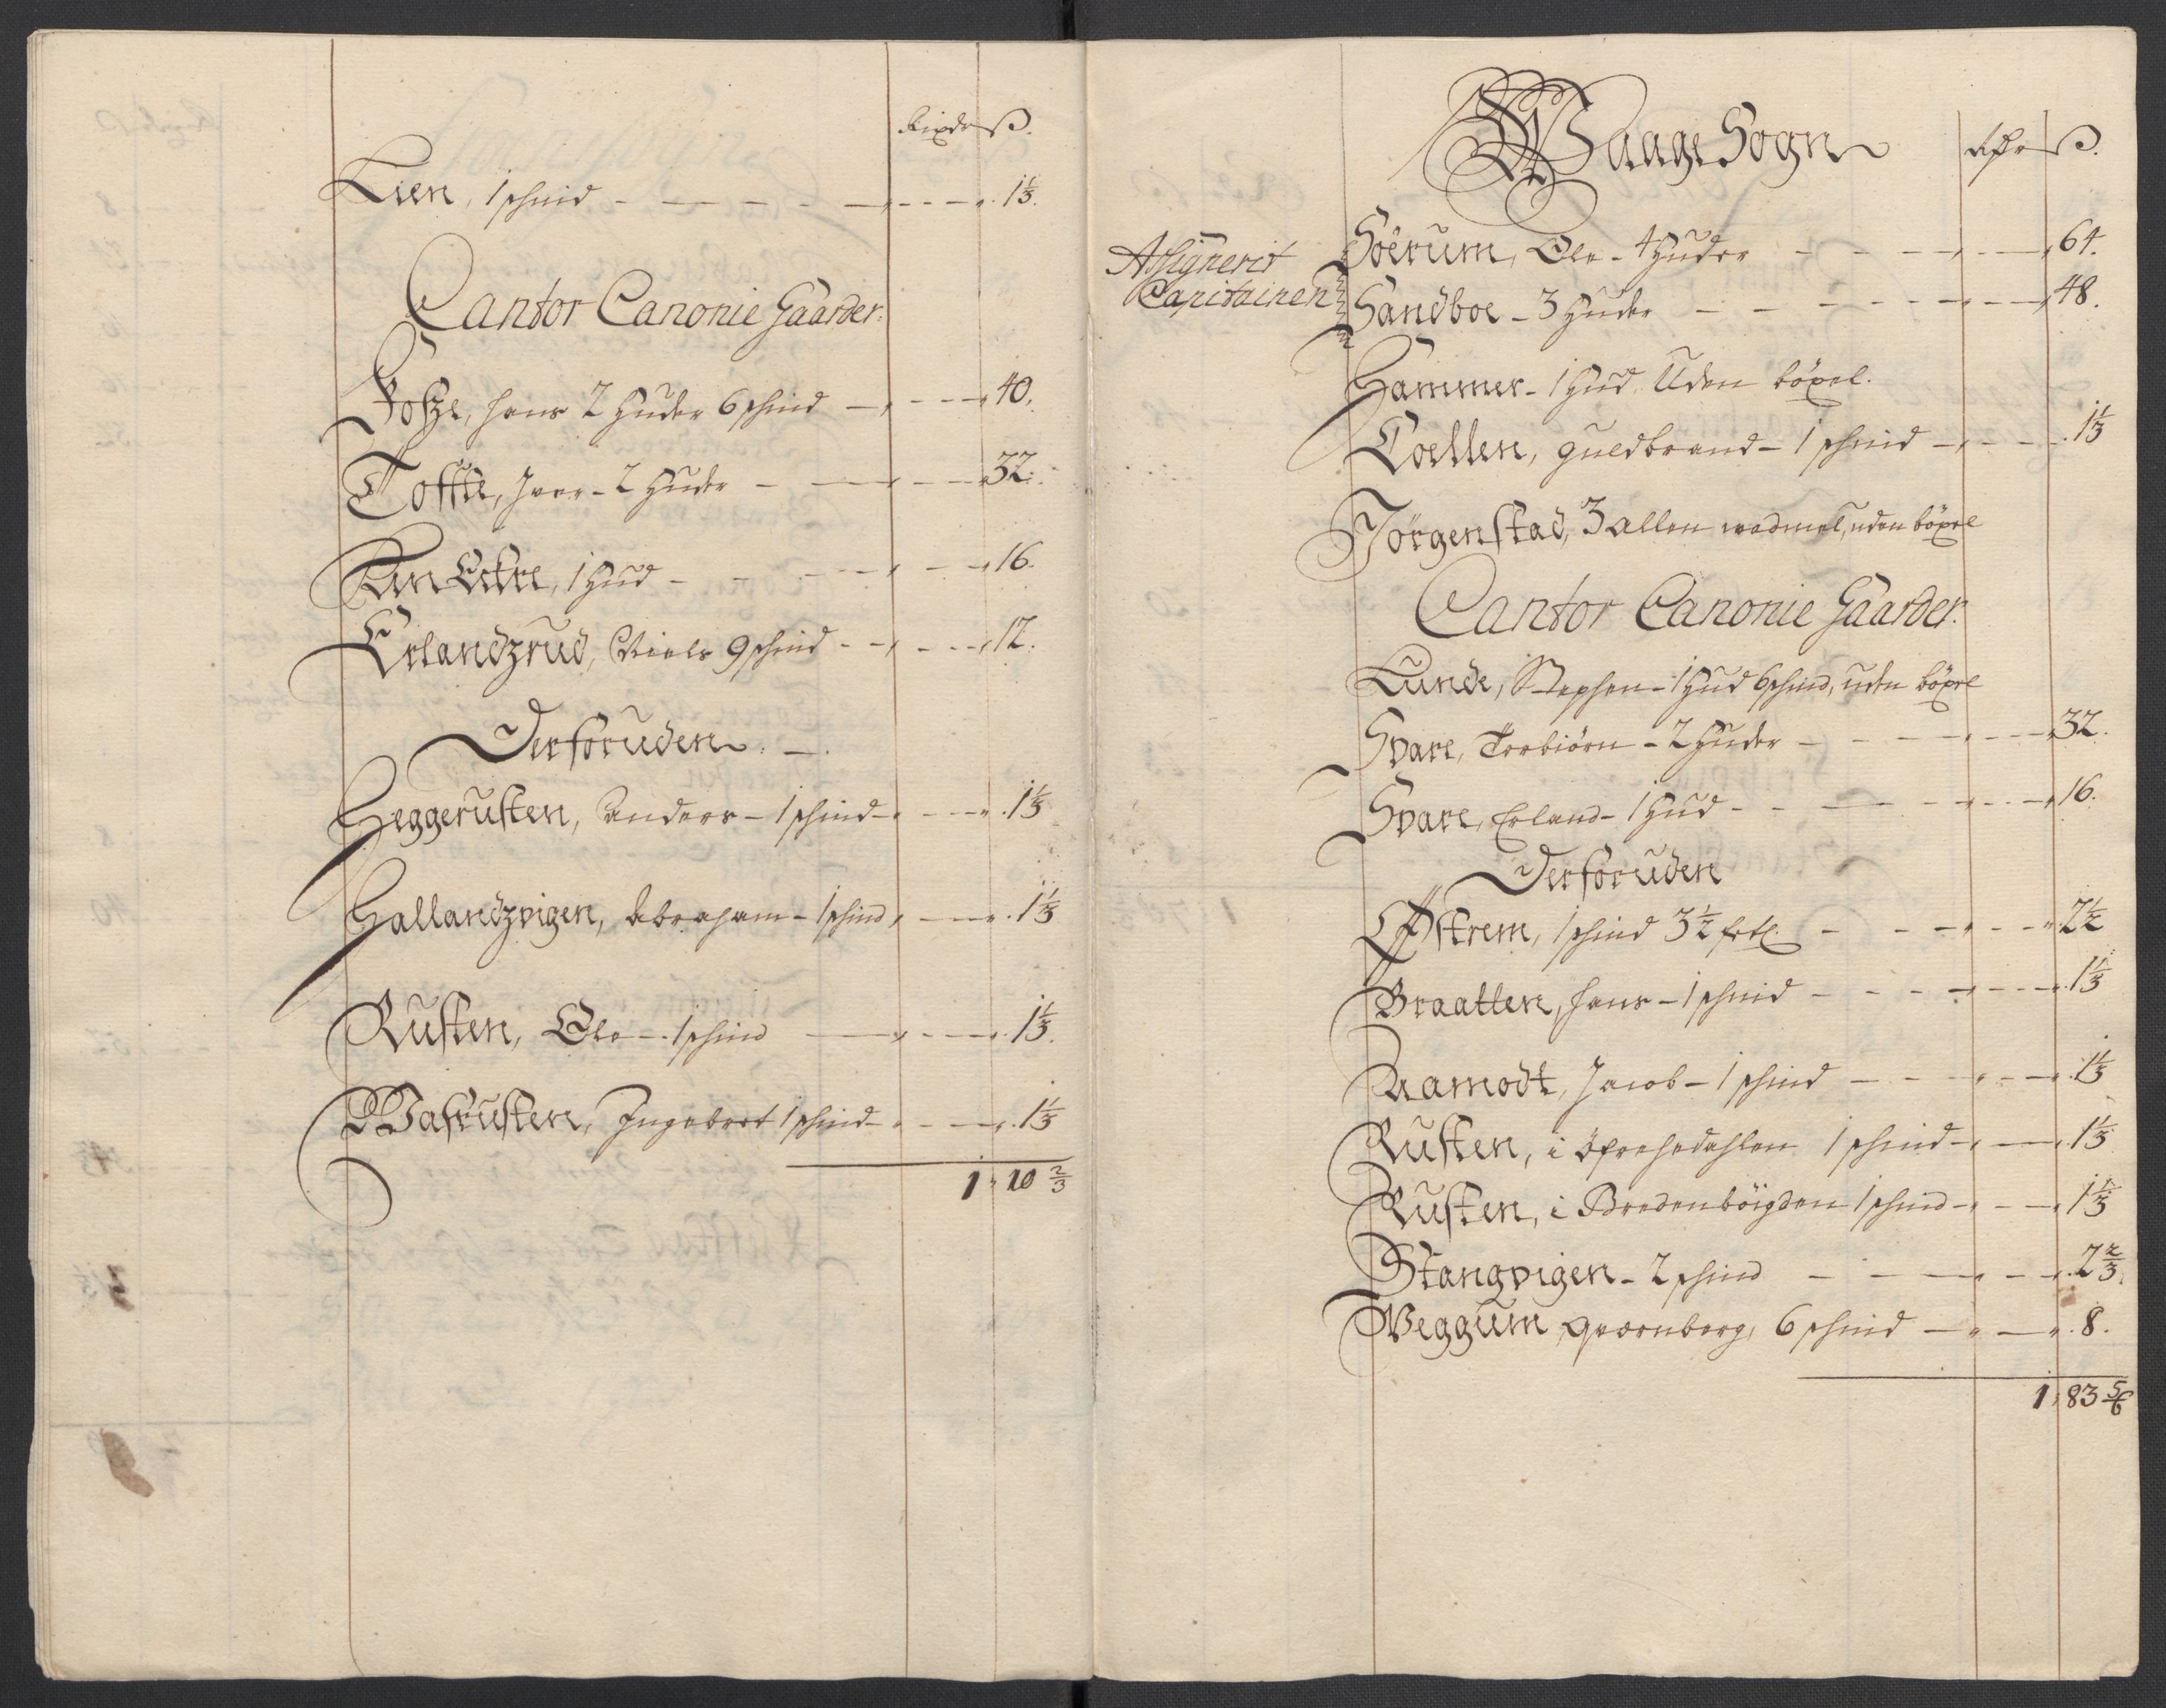 Rixdr ß.
Lien, 1 schind - - - - - 1⅓.
Cantor Canonie Gaarder.
hans 2 Huder 6 schind - - - 40.
Toffte, Iver - 2 Huder - - - 32.
1 Hud - - - - 16.
Erlandzrud, Niels 9 schind - - - 12.
Derforuden. -
Heggerusten, Anders - 1 schind - - - 1⅓
Hallandzvigen, Abraham - 1 schind, - - 1⅓
Rusten, Ole - 1 schind - - - 1⅓.
Wasrusten, Ingebret 1 schind - - - 1⅓
1 " 10 ⅔
Waage Sogn
Rdr ß.
Assignerit
Capitainen
Söerum, Ole - 4 Huder - - - - 64.
Sandboe - 3 Huder - - - - 48.
Hammer - 1 Hud Uden böxel.
Toellen, guldbrand - 1 schind - - - 1⅓
Jörgenstad, 3 allen wadmel, uden böxel
Cantor Canonie Gaarder.
Lunde, Stephen - 1 Hud 6 schind, uden böxel
Svare, Torbiörn - 2 Huder - - - - 32.
Svare, Erland - 1 Hud - - - - 16.
Derforuden
Østrem, 1 schind 3½ - - - - 2½
Braatten, hans - 1 schind - - - - 1⅓
Aamodt, Jacob - 1 schind - - - 1⅓
Rusten, i 1 schind - - - 1⅓
Rusten, i Bredenböigden 1 schind - - - 1⅓
Stangvigen - 2 schind - - - - 2⅔.
Veggum qværnberg, 6 schind - - - 8.
1 " 83 ⅚